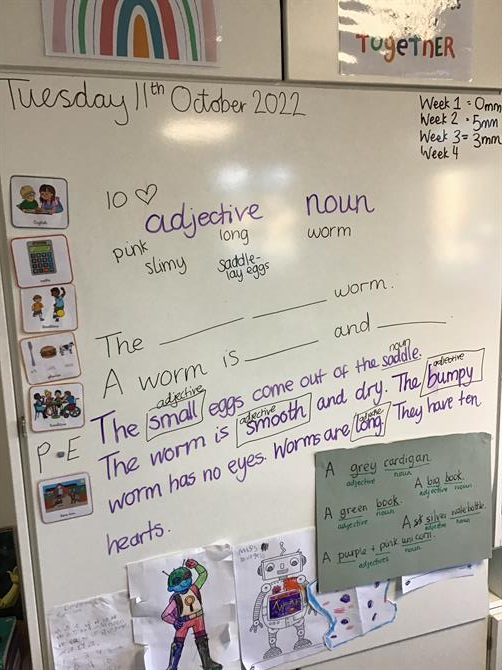 TOGETHER
Tuesday 11th October 2022
Week 1 = 0mm
Week 2 = 5mm
Week 3 = 3mm
Week 4
10 ♡
adjective noun
pink long worm
slimy saddle-
lay eggs
The ____ ____ worm.
A worm is ____ and ____.
adjective noun
The small eggs come out of the saddle.
adjective adjective
The worm is smooth and dry. The bumpy
worm has no eyes. Worms are long. They have ten
hearts.
P.E
A grey cardigan.
adjective noun
A big book.
adjective noun
A green book.
adjective noun
A silver water bottle.
adjective noun
A purple + pink unicorn.
adjectives noun